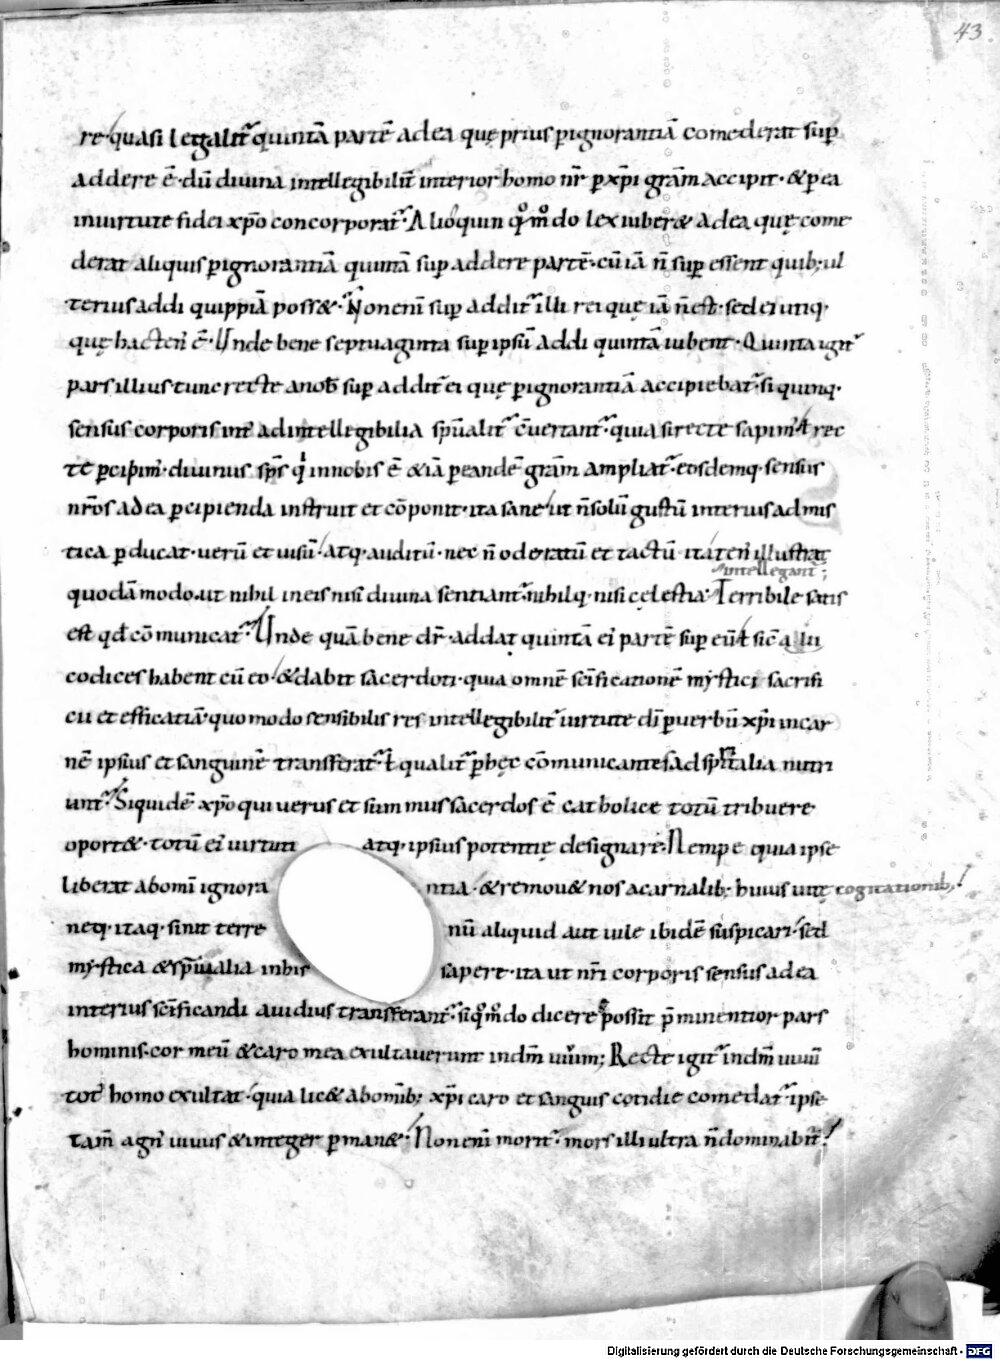 43
re quasi legalit͛ quintā partē ad ea quę prius p̱ ignorantiā comederat sup̱
addere ē· dū diuina intellegibilit͛ interior homo nr̄ p̱ xp̄i gr̄am accipit· & p̱ ea
in uirtute fidei xp̄o concorporat͛· Alioquin qͦmͦdo lex iuber& ad ea quę come
derat aliquis p̱ ignorantiā quintā sup̱ addere partē· cū iā n̄ sup̱ essent quib; ul
terius addi quippiā poss&· Non enī sup̱ addit͛ illi rei quę iā n̄ est· sed ei utiq·
quę hacten᾽ ē· Unde bene septuaginta sup̱ ipsū addi quintā iubent· Quinta igit͛
pars illius tunc recte a nob̄ sup̱ addit͛ ei quę p̱ ignorantiā accipiebat͛· si quinq·
sensus corporis int᾽ ad intellegibilia sp̄ualit͛ c̄uertant͛· quia si recte sapim᾽ ł rec
te p̱cipim᾽· diuinus sp̄s qⁱ in nobis ē & iā p̱ eandē gr̄am ampliat͛· eosdemq· sensus
nr̄os ad ea p̱cipienda instruit et cōponit· ita sane ut n̄ solū gustū interius ad mis
tica p̱ducat· uerū et uisū· atq· auditū· nec n̄ odoratū et tactū ita ten᾽ illustrat
intellegant͛;
quodā modo· ut nihil in eis nisi diuina sentiant͛· nihilq· nisi cęlestia· Terribile satis
est qd̄ cōmunicat͛· Unde quā bene dr̄· addat quintā ei᾽ partē sup̱ eū ł sic᾽ alii
codices habent cū eo· & dabit sacerdoti· quia omnē sc̄ificationē mystici sacrifi
cii et efficatiā· quomodo sensibilis res intellegibilit͛ uirtute dī p̱ uerbū xp̄i in car
nē ipsius et sanguinē transferat͛· ł qualit͛ p̱ hęc cōmunicantes ad sp̄italia nutri
unt͛· Siquidē xp̄o qui uerus et summus sacerdos ē catholice totū tribuere
oport&· totū ei᾽ uirtuti atq· ipsius potentię designare· Nempe quia ipse
liberat ab omī ignora ntia· & remou& nos a carnalib; huius uitę cogitationib;!
neq· itaq· sinit terre nū aliquid aut uile ibidē suspicari· sed
mystica & sp̄iualia in his sapere· ita ut nr̄i corporis sensus ad ea
interius sc̄ificandi auidius transferant͛· si qͦmͦdo dicere possit p̄minentior pars
hominis· cor meū & caro mea exultauerunt in dm̄ uiuum; Recte igit͛ in dm̄ uiuū
tot᾽ homo exultat· quia lic& ab omīb; xp̄i caro et sanguis cotidie comedat͛· ipse
tam̄ agn᾽ uiuus & integer p̱man&· Non enī morit͛· mors illi ultra n̄ dominabit͛!
Digitalisierung gefördert durch die Deutsche Forschungsgemeinschaft - DFG